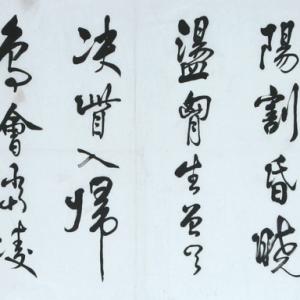 陽割昏曉
盪胸生曾雲
決眥入歸
鳥會當凌